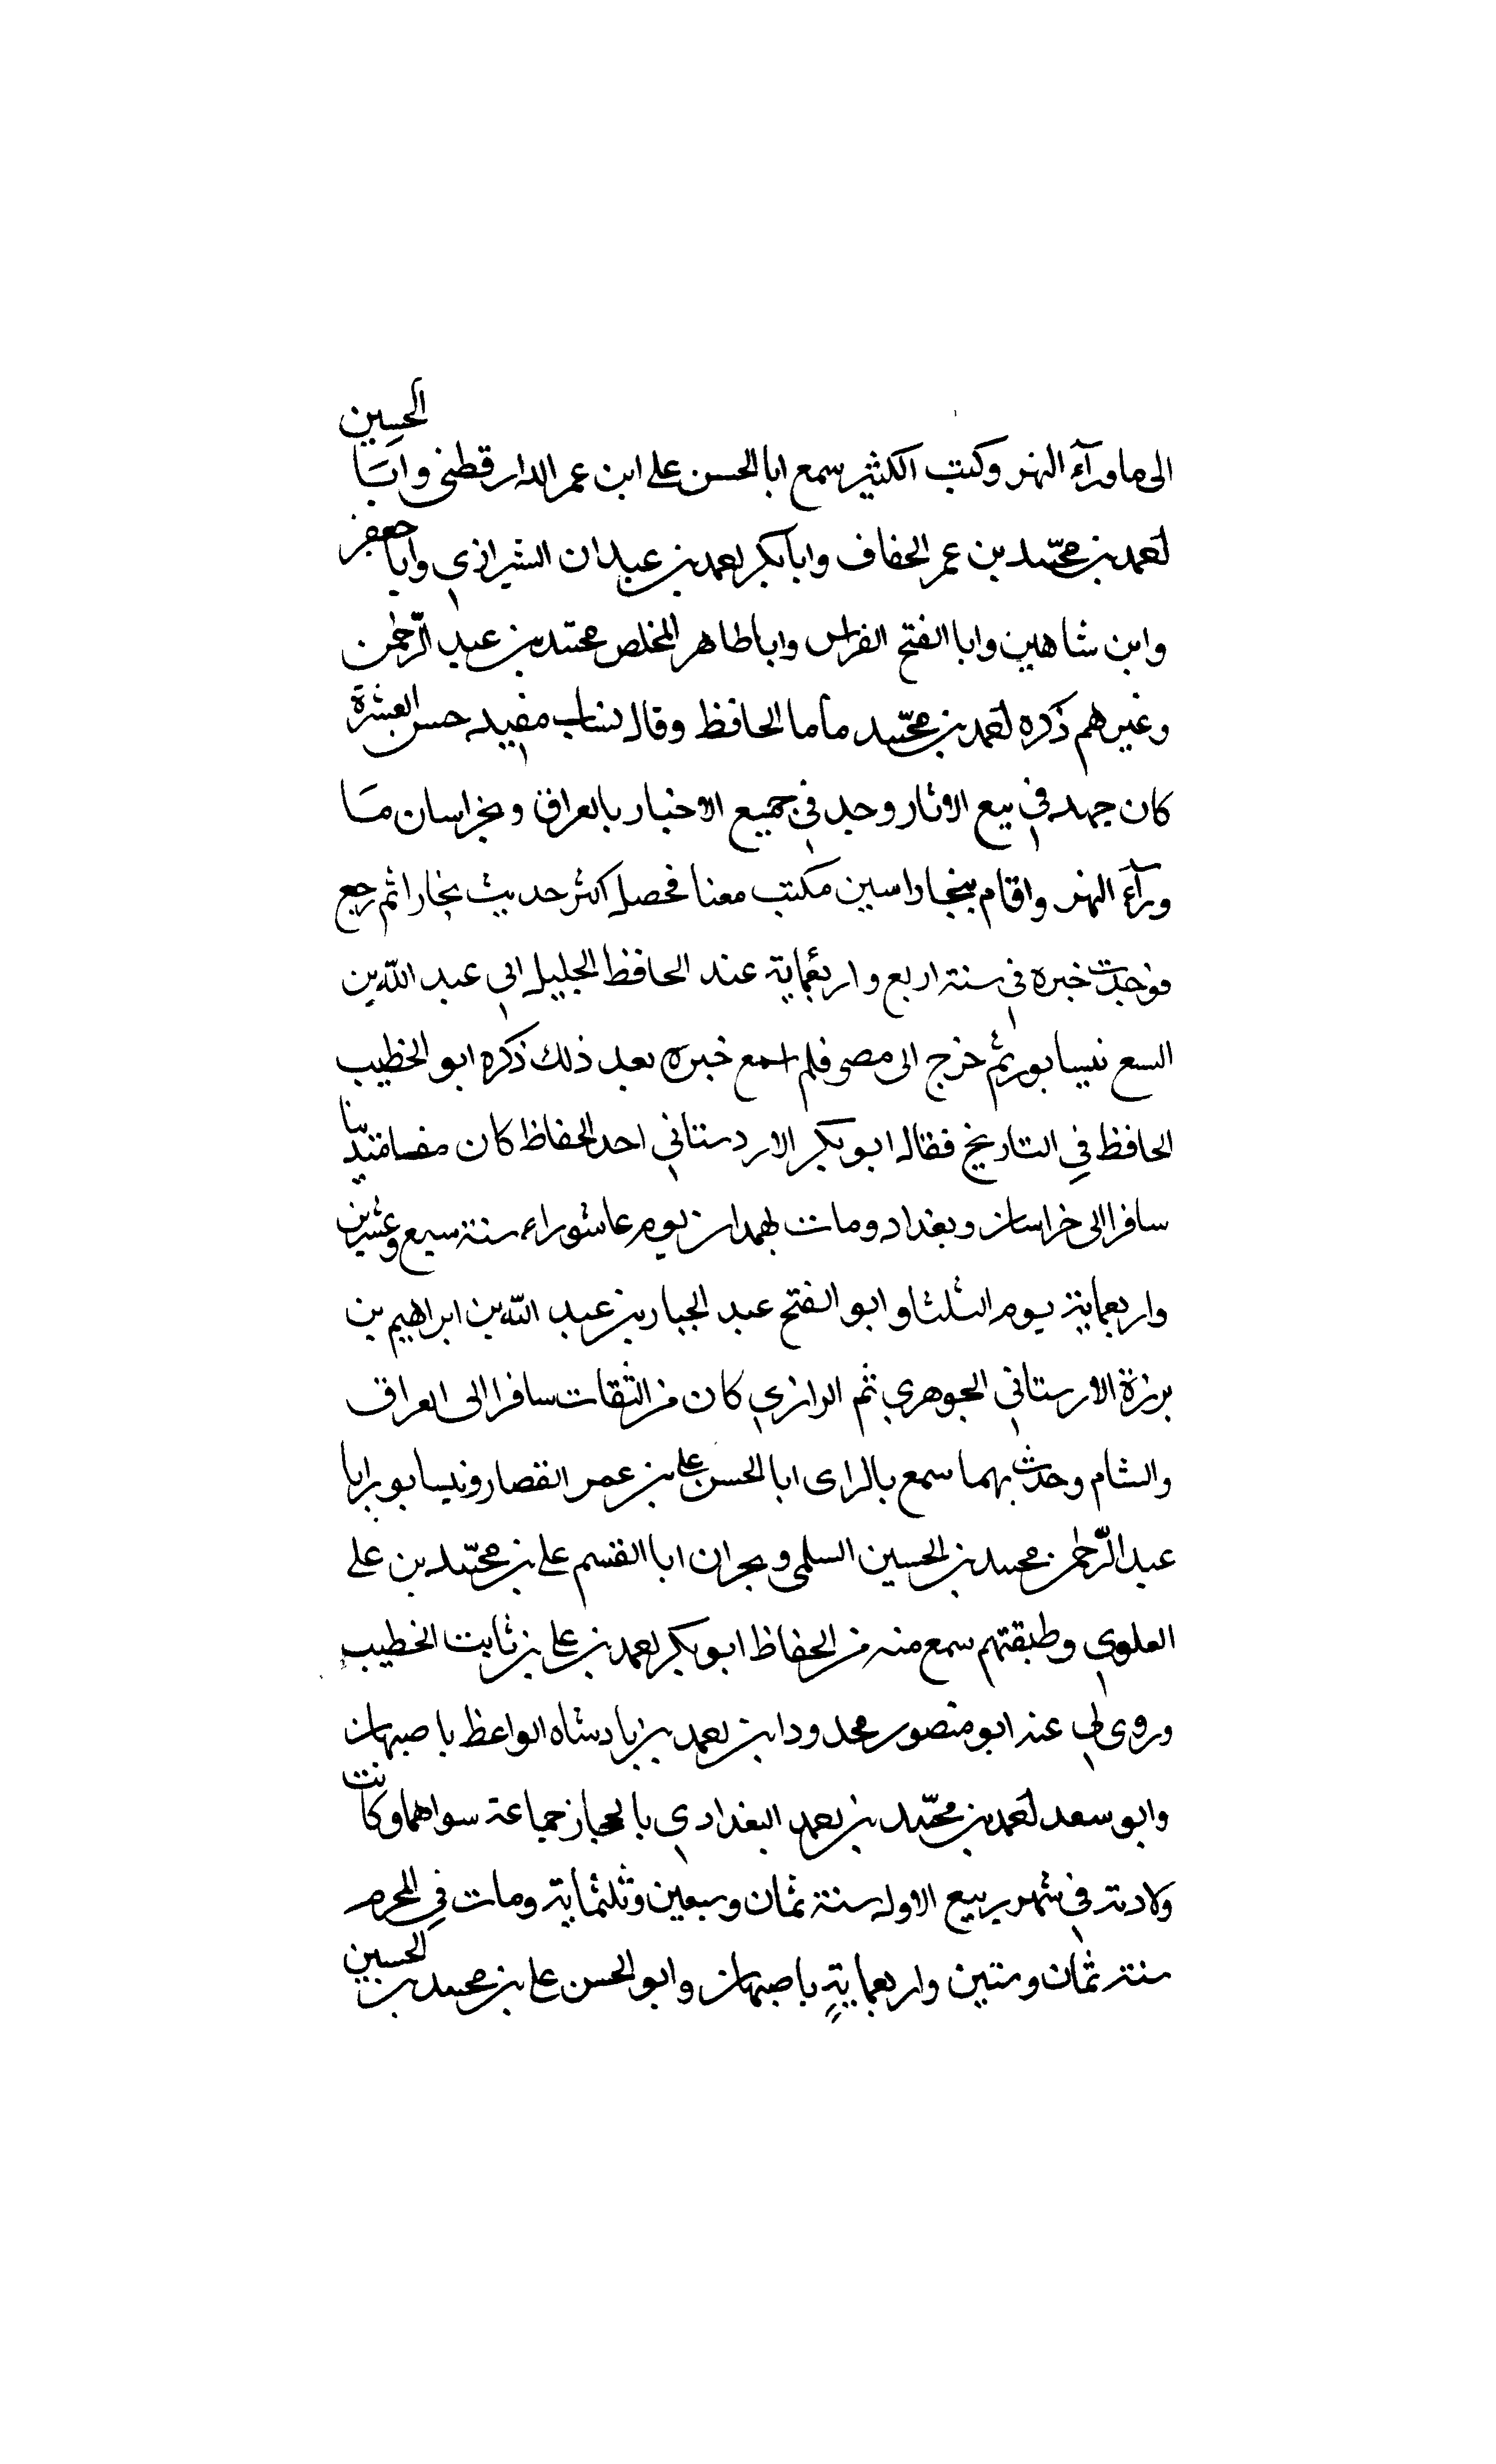 الى ماورآء النهر وكتب الكثير سمع ابا الحسن على ابن عمر الدارقطنى وابا الحسين
احمد بن محمّد بن عمر الخفاف وابا بكر احمد بن عبدان الشيرازي وابا جعفر
وابن شاهين وابا الفتح القواس وابا طاهر المخلص محمّد بن عبد الرّحمن
وغيرهم ذكره احمد بن محمّد ماما الحافظ وقال شاب مفيد حسن العشرة
كان جهد في بيع الاثار وجد في جميع الاخبار بالعراق و بخراسان مَا
ورآء النهر واقام ببخارا سين مكتب معنا فحصل اكثر حديث بخارا ثم رجع
فوجدت خبره في سنة اربع و اربعماية عند الحافظ الجليل ابي عبد الله بن
البيع نيسابور ثم خرج الى مصر فلم اسمع خبره بعد ذلك ذكره ابو الخطيب
الحافظ فِي التاريخ فقال ابو بكر الاردستاني احد الحفاظ كان
سافر الى خراسان وبغداد ومات بهمدان يوم عاشوراء سنة سبع وعشرين
واربعماية يوم الثلثا و ابو الفتح عبد الجبار بن عبد الله بن ابراهيم بن
برزة الارستاني الجوهري ثم الرازي كان من الثقات سافر الى العراق
والشام وحدث بهما سمع بالراى ابا الحسن على بن عمر القصار ونيسابور ابا
عبد الرّحمن محمد بن الحسين السلمى و بحران ابا القسم على بن محمّد بن على
العلوي وطبقتهم سمع منه من الحفاظ ابو بكر احمد بن على بن ثابت الخطيب
وروى لي عنه ابو منصور محمود ابن احمد بن بادشاه الواعظ باصبهان
وابو سعد احمد بن محمّد بن احمد البغدادي بالحجاز جماعة سواهما وكانت
ولادته في شهر ربيع الاول سنة ثمان وسبعين وثلثماية ومات فِي المحرم
سنة ثمان وستين واربعمايةٍ باصبهان وابو الحسن على بن محمد بن الحسين